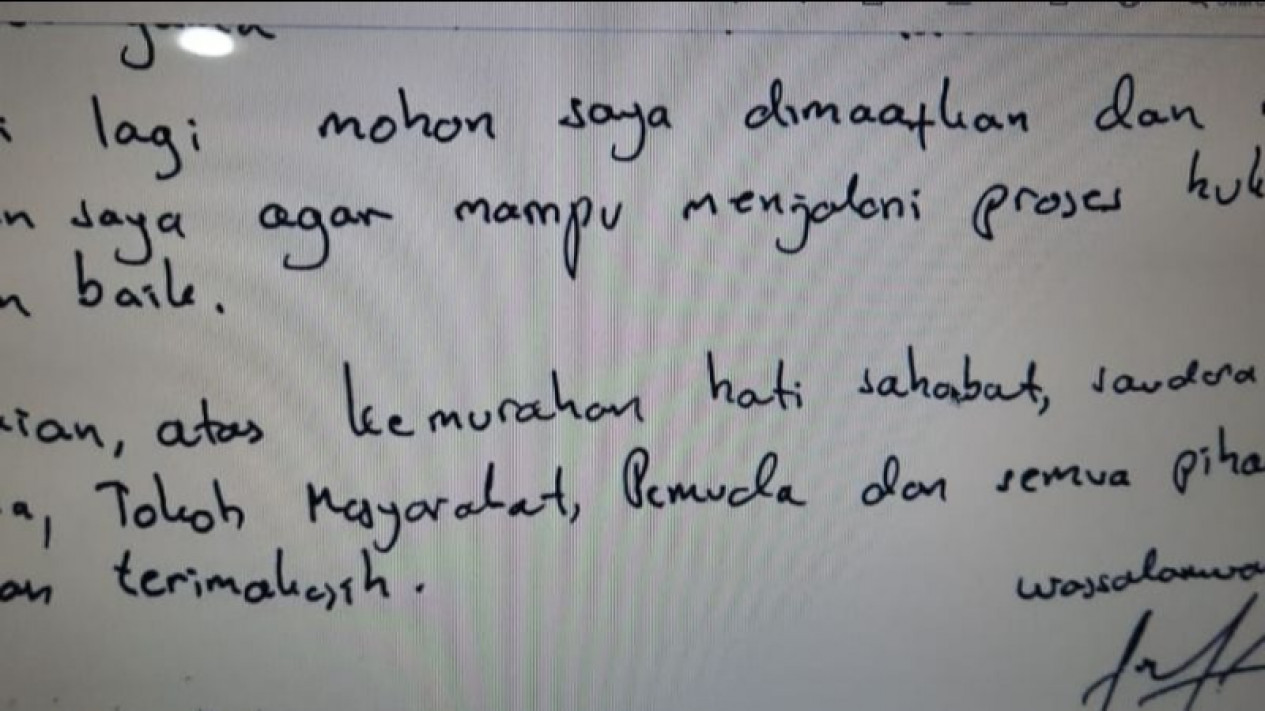 i lagi mohon saya dimaafkan dan
n saya agar mampu menjalani proses huk
n baik.
ian, atas kemurahan hati sahabat, saudara
a, Tokoh Masyarakat, Pemuda dan semua piha
an terimakasih.
wassalamua